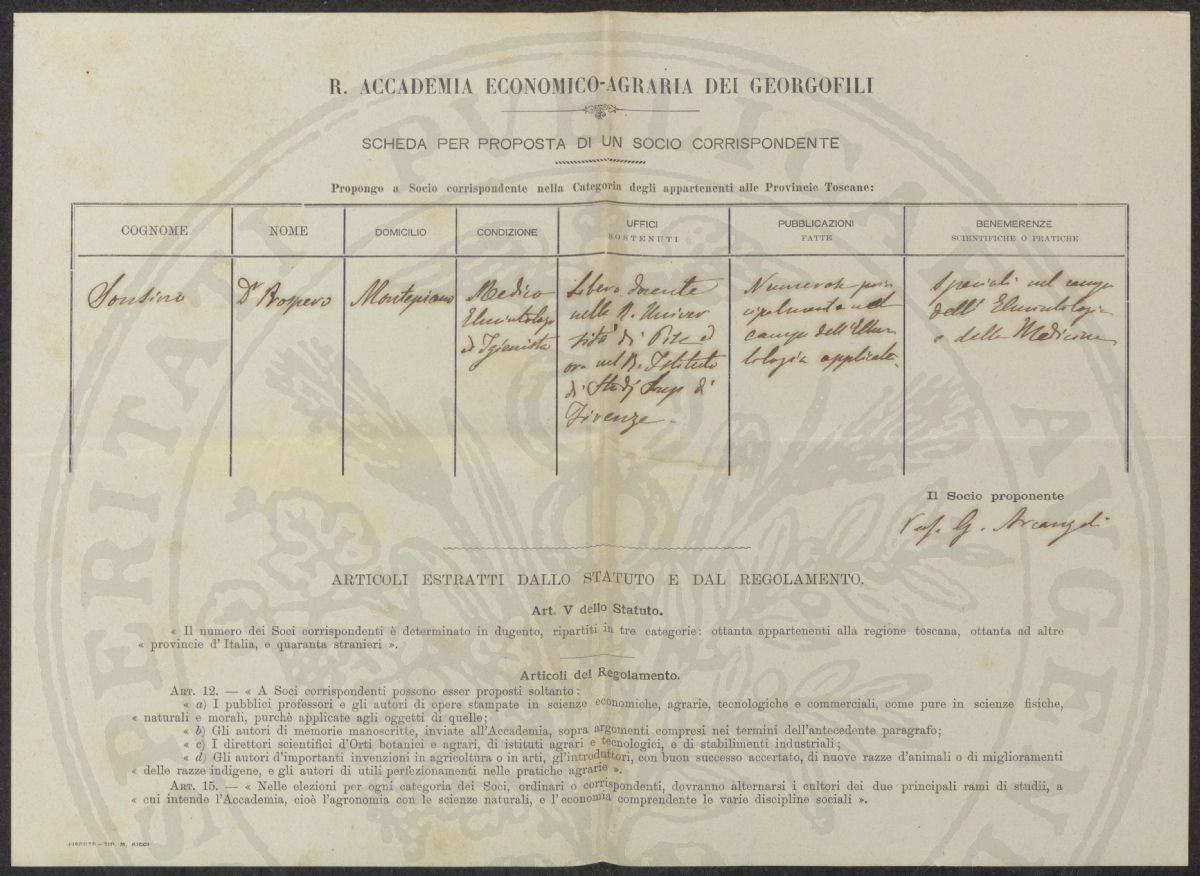 R. ACCADEMIA ECONOMICO-AGRARIA DEI GEORGOFILI
SCHEDA PER PROPOSTA DI UN SOCIO CORRISPONDENTE
Propongo a Socio corrispondente nella Categoria degli appartenenti alle Provincie Toscane:
COGNOME
NOME
DOMICILIO
CONDIZIONE
UFFICI
SOSTENUTI
PUBBLICAZIONI
FATTE
BENEMERENZE
SCIENTIFICHE O PRATICHE
Sonsino
Dr Prospero
Montepiano
Medico
Elmintologo
ed Igienista
Libero docente
nella R. Univer
sità di Pisa ed
ora nel R. Istituto
di Studj Sup. di
Firenze
Numerose prin
cipalmente nel
campo dell'Elmin
tologia applicata
Speciali nel campo
dell'Elmintologia
e della Medicina
Il Socio proponente
Prof. G. Arcangeli
ARTICOLI ESTRATTI DALLO STATUTO E DAL REGOLAMENTO.
Art. V dello Statuto.
« Il numero dei Soci corrispondenti è determinato in dugento, ripartiti in tre categorie: ottanta appartenenti alla regione toscana, ottanta ad altre
« provincie d'Italia, e quaranta stranieri ».
Articoli del Regolamento.
ART. 12. — « A Soci corrispondenti possono esser proposti soltanto:
« a) I pubblici professori e gli autori di opere stampate in scienze economiche, agrarie, tecnologiche e commerciali, come pure in scienze fisiche,
« naturali e morali, purchè applicate agli oggetti di quelle;
« b) Gli autori di memorie manoscritte, inviate all'Accademia, sopra argomenti compresi nei termini dell'antecedente paragrafo;
« c) I direttori scientifici d'Orti botanici e agrari, di istituti agrari e tecnologici, e di stabilimenti industriali;
« d) Gli autori d'importanti invenzioni in agricoltura o in arti, gl'introduttori, con buon successo accertato, di nuove razze d'animali o di miglioramenti
« delle razze indigene, e gli autori di utili perfezionamenti nelle pratiche agrarie ».
ART. 15. — « Nelle elezioni per ogni categoria dei Soci, ordinari o corrispondenti, dovranno alternarsi i cultori dei due principali rami di studii, a
« cui intende l'Accademia, cioè l'agronomia con le scienze naturali, e l'economia comprendente le varie discipline sociali ».
FIRENZE - TIP. M. RICCI